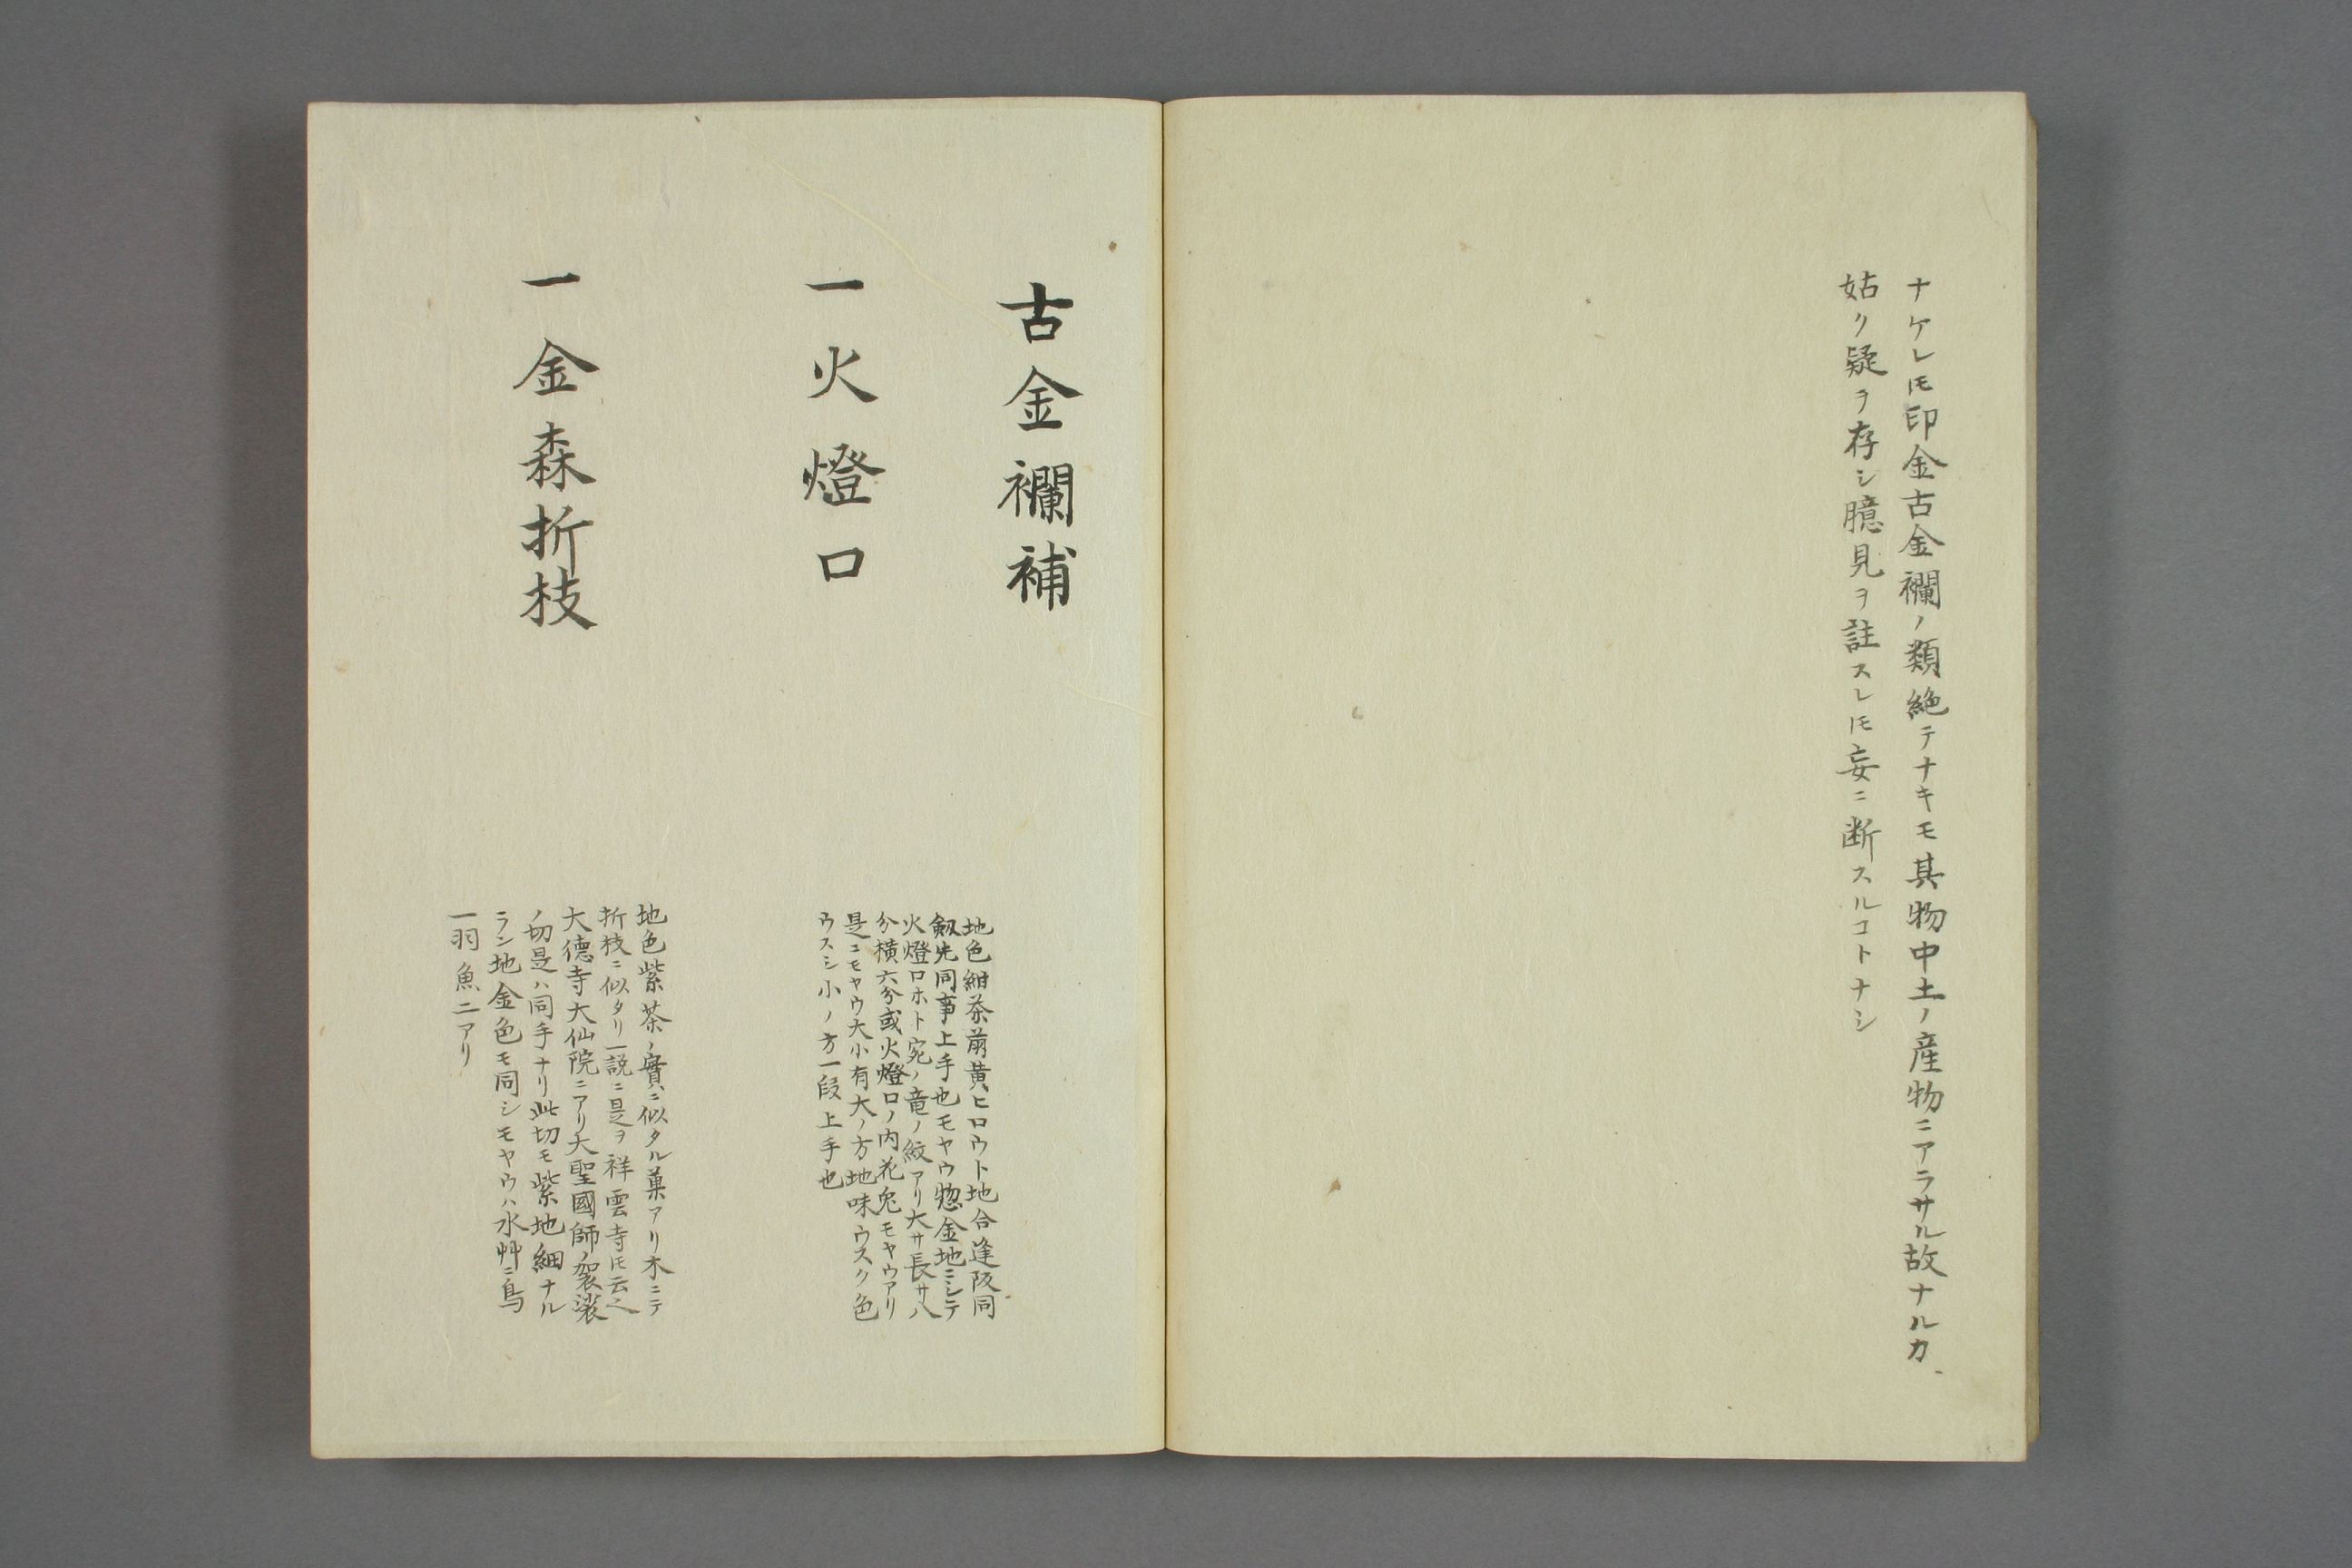 ナケレ𪜈印金古金襴ノ類絶テナキモ其物中土ノ産物ニアラサル故ナルカ
姑ク疑ヲ存シ臆見ヲ註スレ𪜈妄ニ断スルコトナシ
古金襴補
一火燈口
地色紺茶萠黄ヒロウト地合逢阪同
劔先同事上手也モヤウ惣金地ニシテ
火燈口ホト宛ノ竜ノ紋アリ大サ長サ八
分横六分或火燈口ノ内花兎モヤウアリ
是ニモヤウ大小有大ノ方地味ウスク色
ウスシ小ノ方一段上手也
一金森折枝
地色紫茶ノ實ニ似タル菓アリ木ニテ
折枝ニ似タリ一説ニ是ヲ祥雲寺𪜈云之
大德寺大仙院ニアリ大聖國師ノ袈裟
ノ切是ハ同手ナリ此切モ紫地細ナル
ラン地金色モ同シモヤウハ水艸ニ鳥
一羽魚二アリ